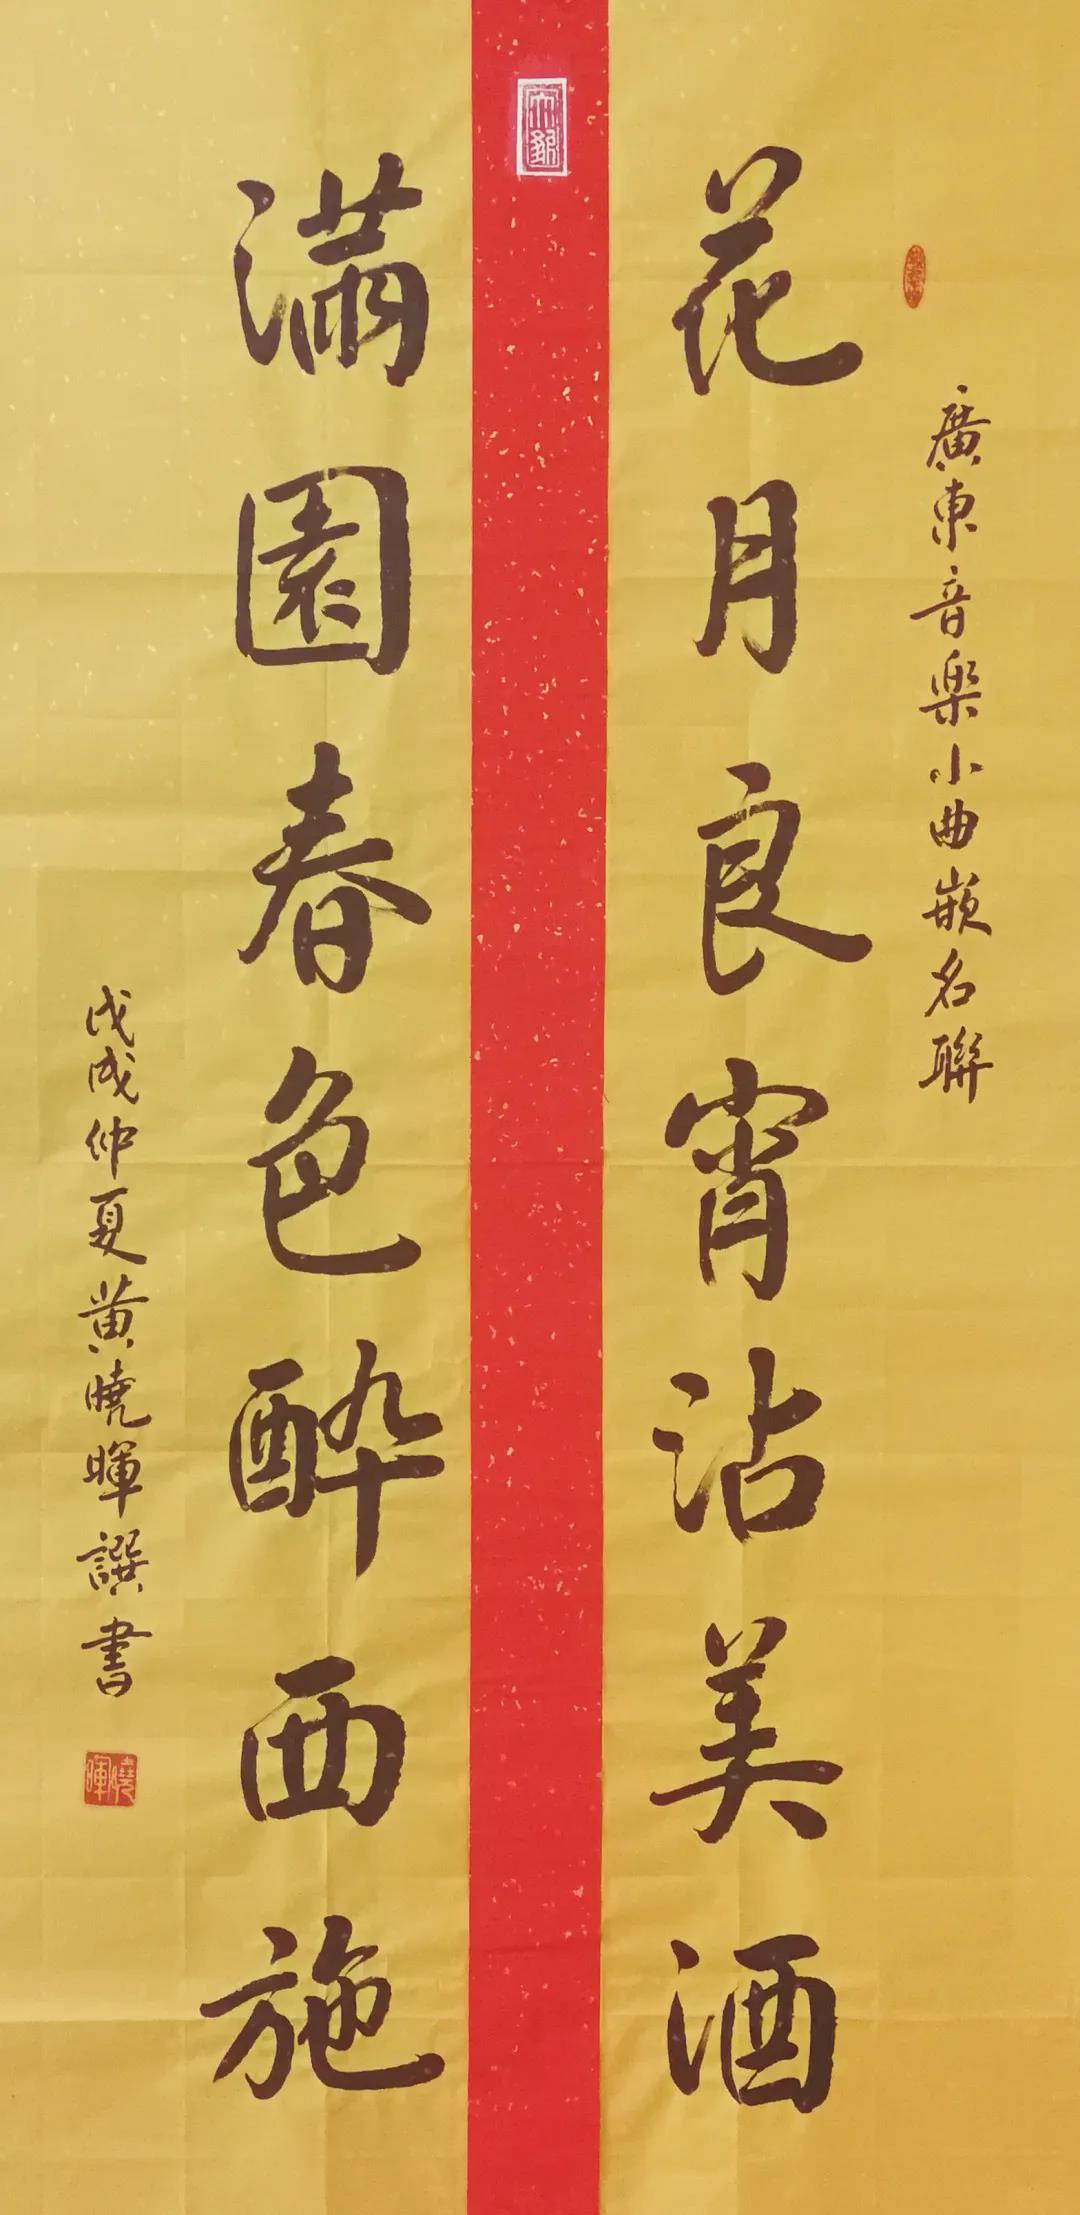 廣東音樂小曲嵌名聯
花月良宵沾美酒
滿園春色醉西施
戊戌仲夏黄曉暉譔書
曉暉